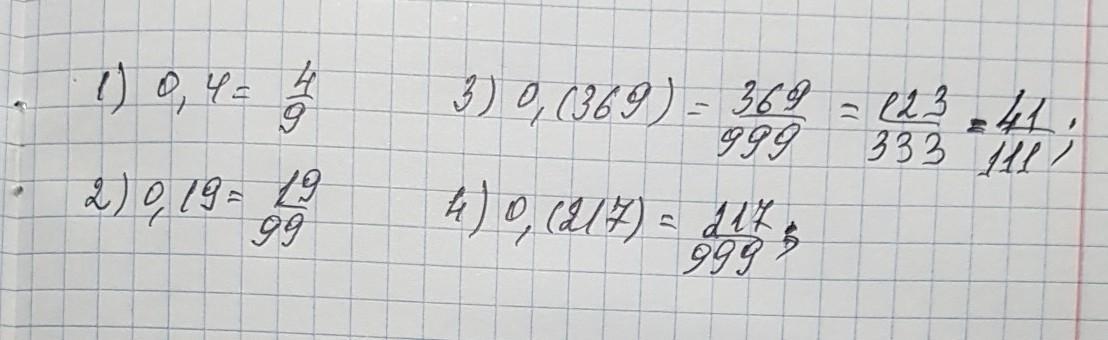 1) 0,4 = 4/9
2) 0,19 = 19/99
3) 0,(369) = 369/999 = 123/333 = 41/111;
4) 0,(217) = 217/999;